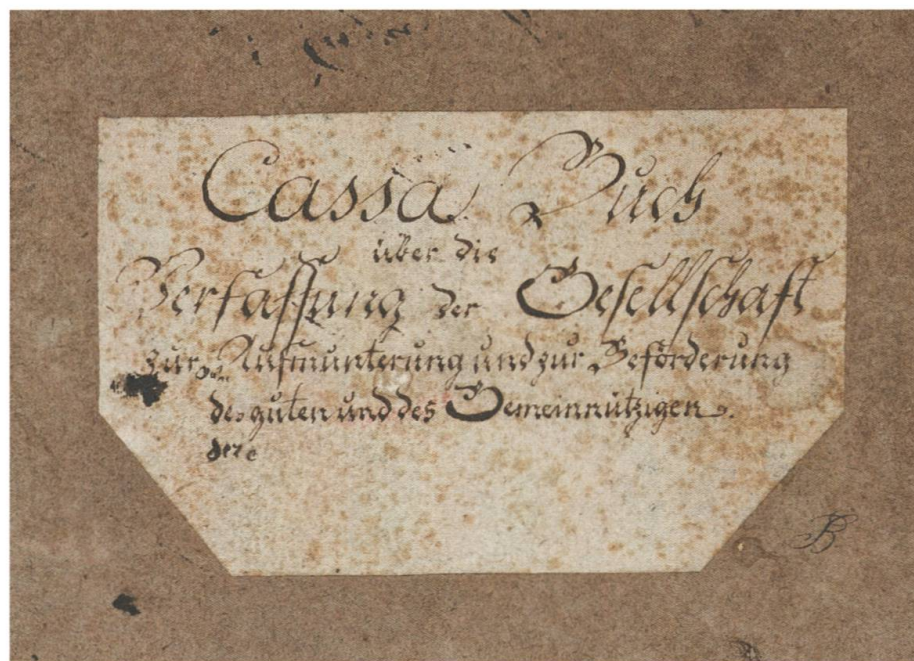 Cassa Buch
über die
Verfassung der Gesellschaft
zur Aufmunterung und zur Beförderung
des guten und des Gemeinnützigen.
B